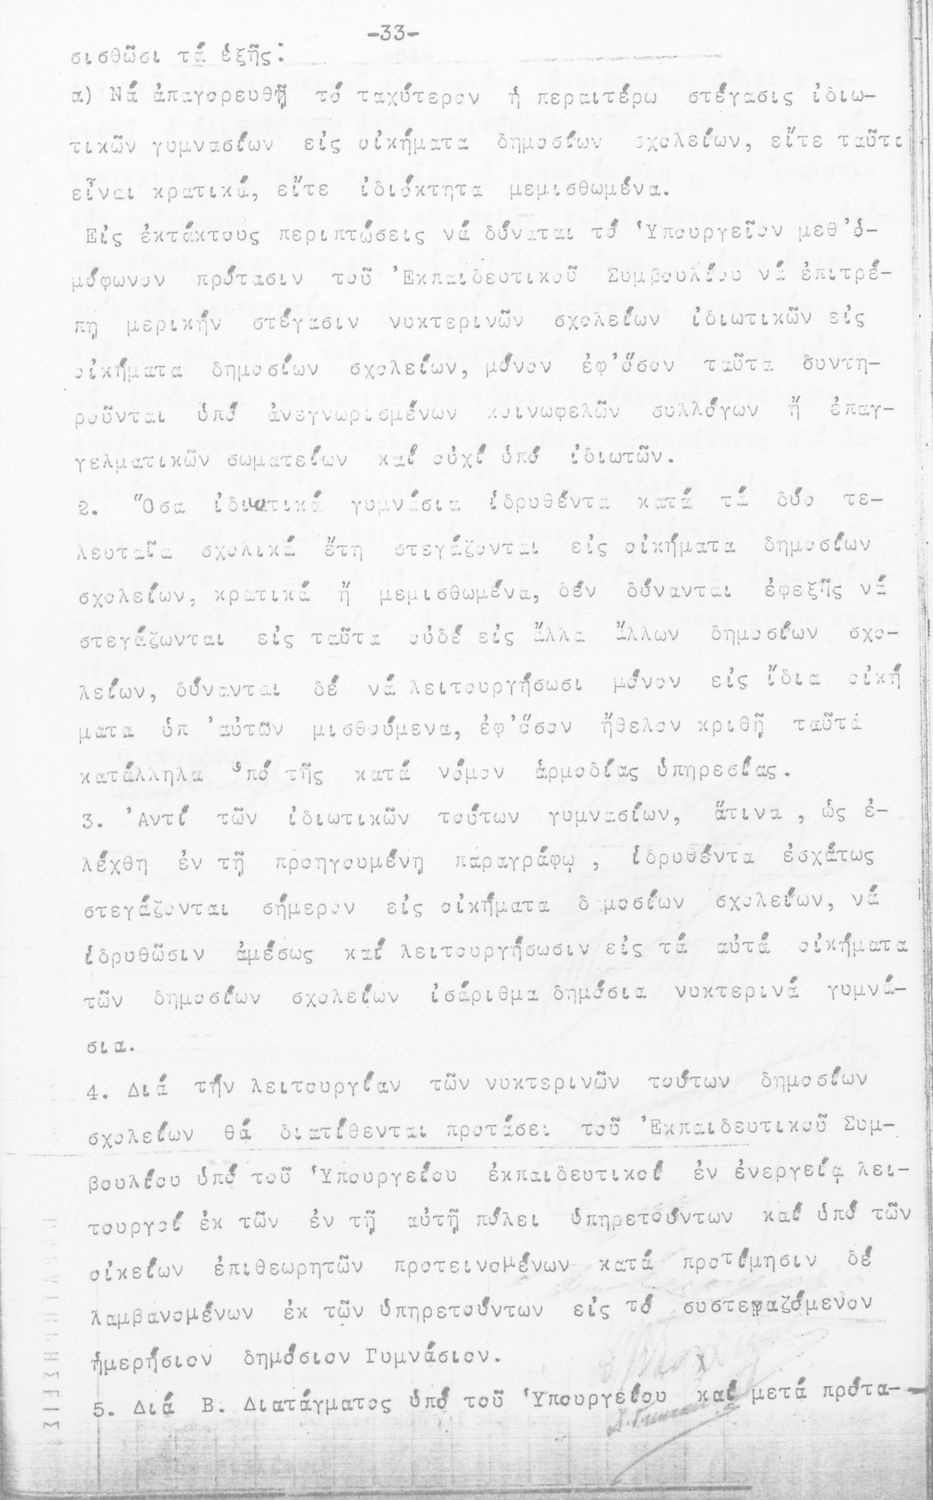 -33-
σισθῶσι τά ἑξῆς:
α) Νά ἀπαγορευθῇ τό ταχύτερον ἡ περαιτέρω στέγασις ἰδιω-
τικῶν γυμνασίων εἰς οἰκήματα δημοσίων σχολείων, εἴτε ταῦτα
εἶναι κρατικά, εἴτε ἰδιόκτητα μεμισθωμένα.
Εἰς ἐκτάκτους περιπτώσεις νά δύναται τό Ὑπουργεῖον μεθ'ὁ-
μόφωνον πρότασιν τοῦ Ἐκπαιδευτικοῦ Συμβουλίου νά ἐπιτρέ-
πη μερικήν στέγασιν νυκτερινῶν σχολείων ἰδιωτικῶν εἰς
οἰκήματα δημοσίων σχολείων, μόνον ἐφ'ὅσον ταῦτα συντη-
ροῦνται ὑπό ἀνεγνωρισμένων κοινωφελῶν συλλόγων ἤ ἐπαγ-
γελματικῶν σωματείων καί οὐχί ὑπό ἰδιωτῶν.
2. Ὅσα ἰδιωτικά γυμνάσια ἱδρυθέντα κατά τά δύο τε-
λευταῖα σχολικά ἔτη στεγάζονται εἰς οἰκήματα δημοσίων
σχολείων, κρατικά ἤ μεμισθωμένα, δέν δύνανται ἐφεξῆς νά
στεγάζωνται εἰς ταῦτα οὐδέ εἰς ἄλλα ἄλλων δημοσίων σχο-
λείων, δύνανται δέ νά λειτουργήσωσι μόνον εἰς ἴδια οἰκή
ματα ὑπ 'αὐτῶν μισθούμενα, ἐφ'ὅσον ἤθελον κριθῆ ταῦτα
κατάλληλα ὑπό τῆς κατά νόμον ἁρμοδίας ὑπηρεσίας.
3. Ἀντί τῶν ἰδιωτικῶν τούτων γυμνασίων, ἅτινα , ὡς ἐ-
λέχθη ἐν τῇ προηγουμένη παραγράφῳ , ἱδρυθέντα ἐσχάτως
στεγάζονται σήμερον εἰς οἰκήματα δημοσίων σχολείων, νά
ἱδρυθῶσιν ἀμέσως καί λειτουργήσωσιν εἰς τά αὐτά οἰκήματα
τῶν δημοσίων σχολείων ἰσάριθμα δημόσια νυκτερινά γυμνά-
σια.
4. Διά τήν λειτουργίαν τῶν νυκτερινῶν τούτων δημοσίων
σχολείων θά διατίθενται προτάσει τοῦ Ἐκπαιδευτικοῦ Συμ-
βουλίου ὑπό τοῦ Ὑπουργείου ἐκπαιδευτικοί ἐν ἐνεργείᾳ λει-
τουργοί ἐκ τῶν ἐν τῇ αὐτῇ πόλει ὑπηρετούντων καί ὑπό τῶν
οἰκείων ἐπιθεωρητῶν προτεινομένων κατά προτίμησιν δέ
λαμβανομένων ἐκ τῶν ὑπηρετούντων εἰς τό συστεγαζόμενον
ἡμερήσιον δημόσιον Γυμνάσιον.
5. Διά Β. Διατάγματος ὑπό τοῦ Ὑπουργείου καί μετά πρότα-